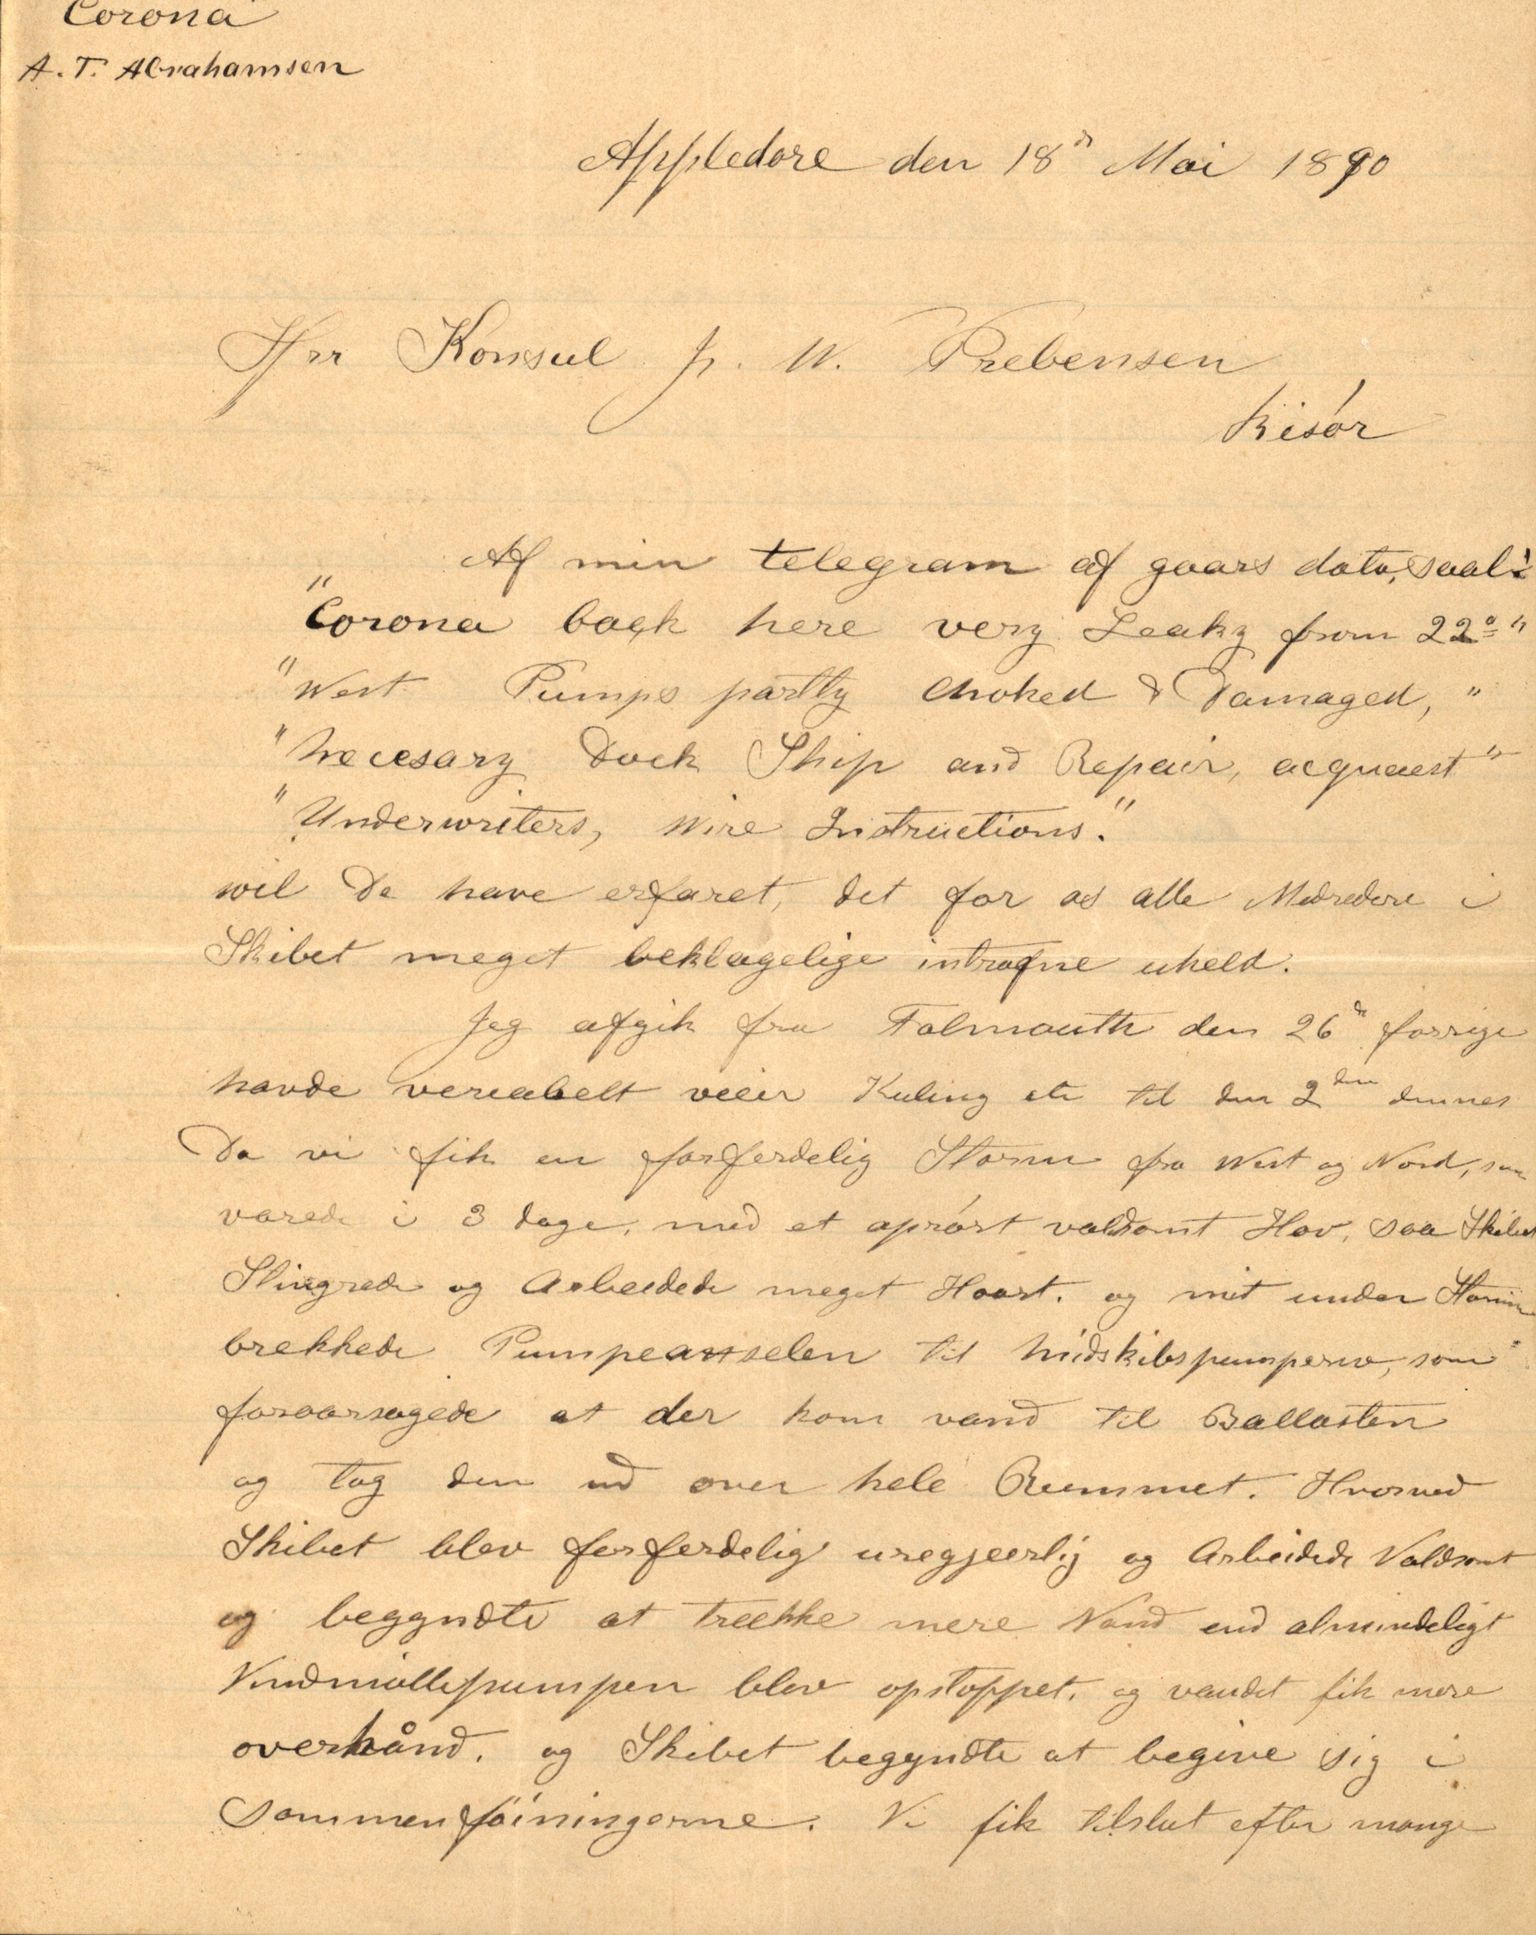 Corona
A. T. Abrahamsen
Appledore den 18d Mai 1890
Hrr Konsul J. W. Prebensen
Risör
Af min telegram af gaars dato,
"Corona back here very Leaky from 22° "
"West Pumps partly choked & Damaged, "
"Necesary Dock Ship and Repair, acquaest "
"Underwriters, Wire Instructions."
vil De have erfaret, det for os alle Medredere i
Skibet meget beklagelige intrafne uheld.
Jeg afgik fra Falmouth den 26d forrige
havde veriabelt veier Kuling etc til den 2den dennes
Da vi fik en forferdelig Storm fra West og Nord, som
varede i 3 dage, med et oprórt voldsomt Hav, saa Skibet
Slingrede og Arbeidede meget Haart. og mit under Stormen
brekkede Pumpeaxselen til Midskibspumperne, som
foraarsagede at der kom vand til Ballasten
og tog den ud over hele Rummet. Hvorved
Skibet blev forferdelig uregjeerlig og Arbeidede Voldsomt
og begyndte at treekke mere Vand end almindeligt
Vindmöllepumpen blev opstoppet. og vandet fik mere
overhånd. og Skibet begyndte at begive sig i
Sammenföiningerne. Vi fik tilslut efter mange